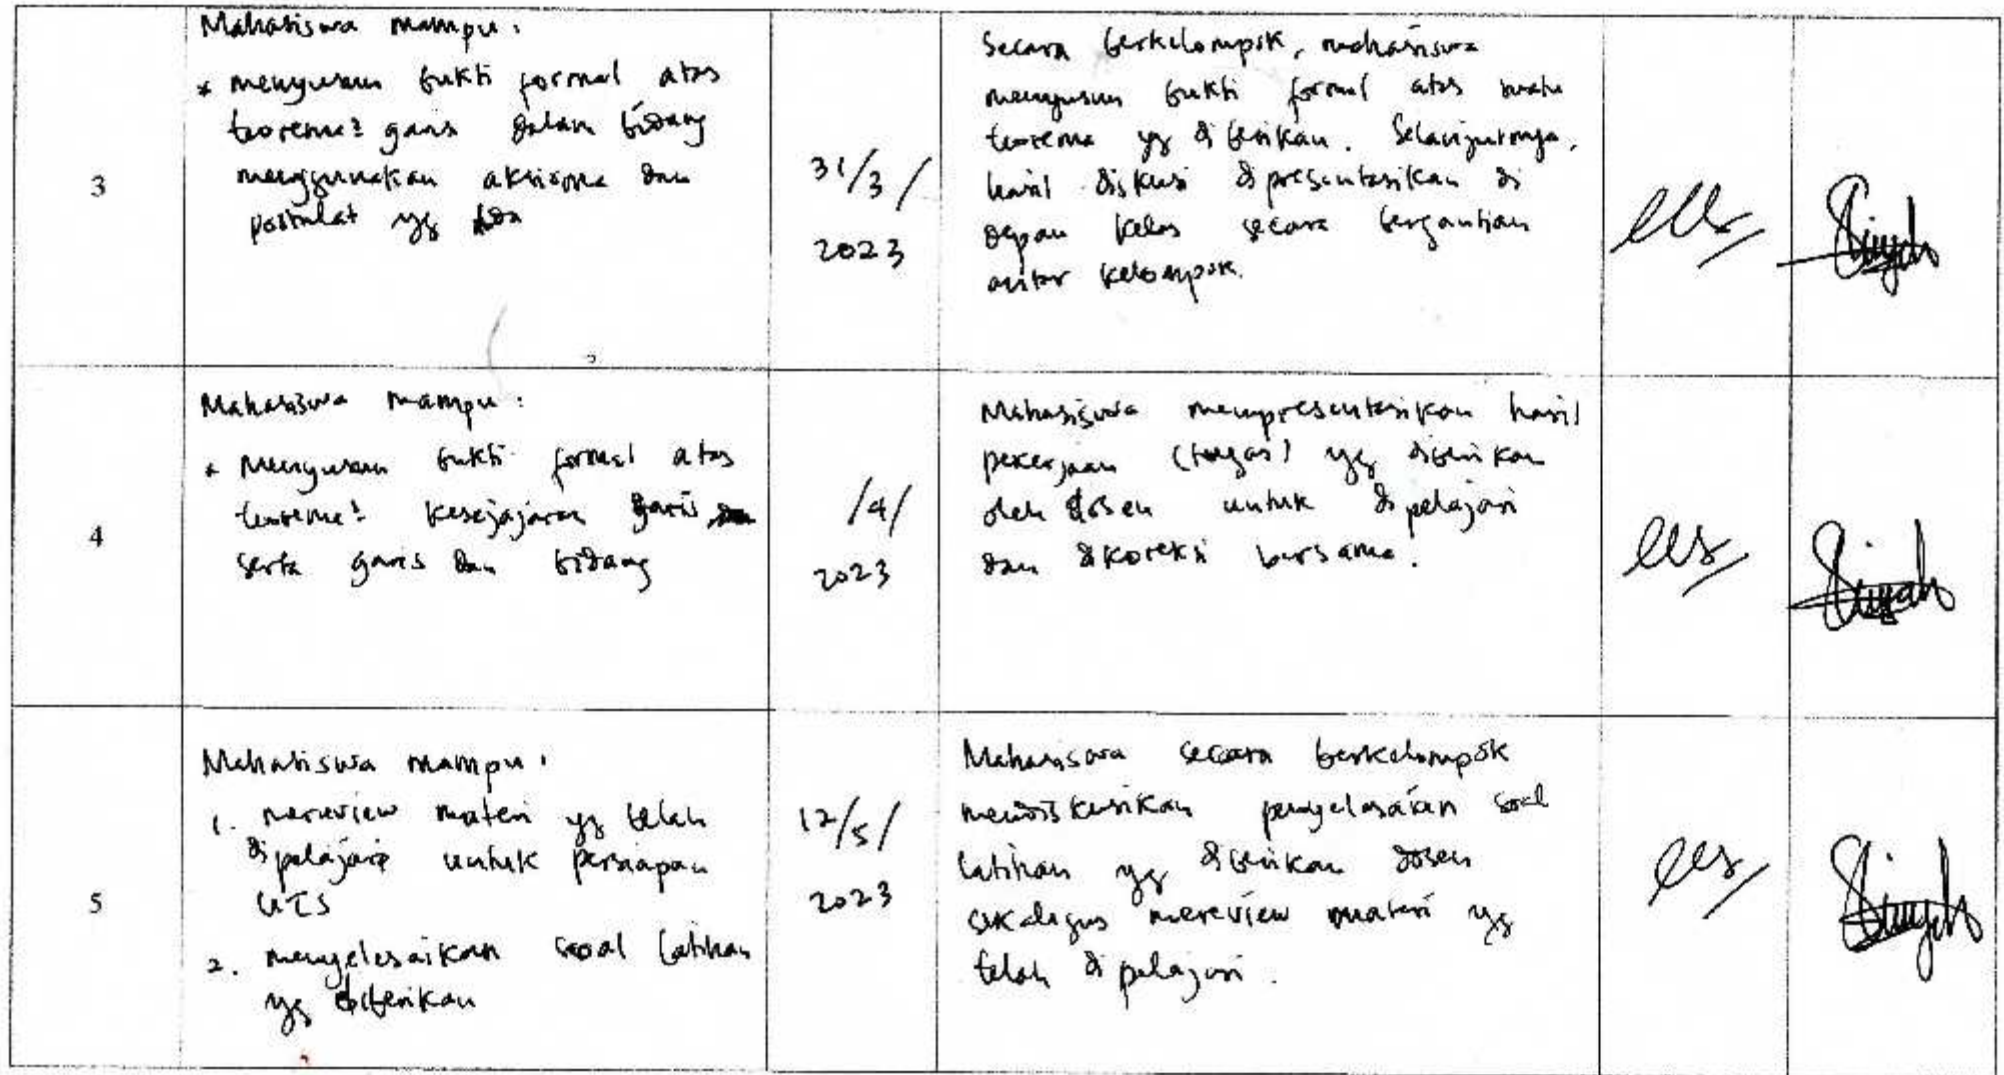 3
Mahasiswa mampu :
* menyusun bukti formal atas
teorema² garis dalam bidang
menggunakan aksioma dan
postulat yg ada
31/3/
2023
Secara berkelompok, mahasiswa
menyusun bukti formal atas suatu
teorema yg diberikan. Selanjutnya,
hasil diskusi dipresentasikan di
depan kelas secara bergantian
antar kelompok.
4
Mahasiswa mampu :
* Menyusun bukti formal atas
teorema² kesejajaran garis
serta garis dan bidang
/4/
2023
Mahasiswa mempresentasikan hasil
pekerjaan (tugas) yg diberikan
oleh dosen untuk dipelajari
dan dikoreksi bersama.
5
Mahasiswa mampu :
1. mereview materi yg telah
dipelajari untuk persiapan
UTS
2. menyelesaikan soal latihan
yg diberikan
12/5/
2023
Mahasiswa secara berkelompok
mendiskusikan penyelesaian soal
latihan yg diberikan dosen
sekaligus mereview materi yg
telah dipelajari.